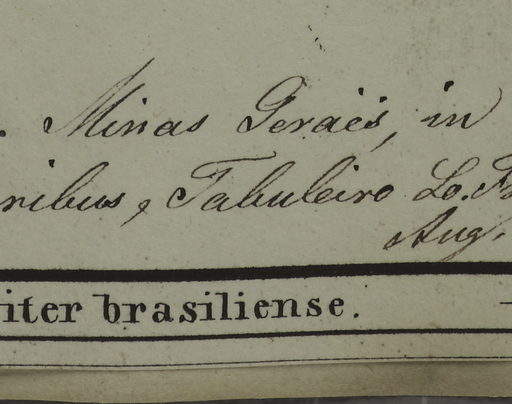 . Minas Geraës, in
ribus, Tabuleiro Lo.
Aug.
iter brasiliense.